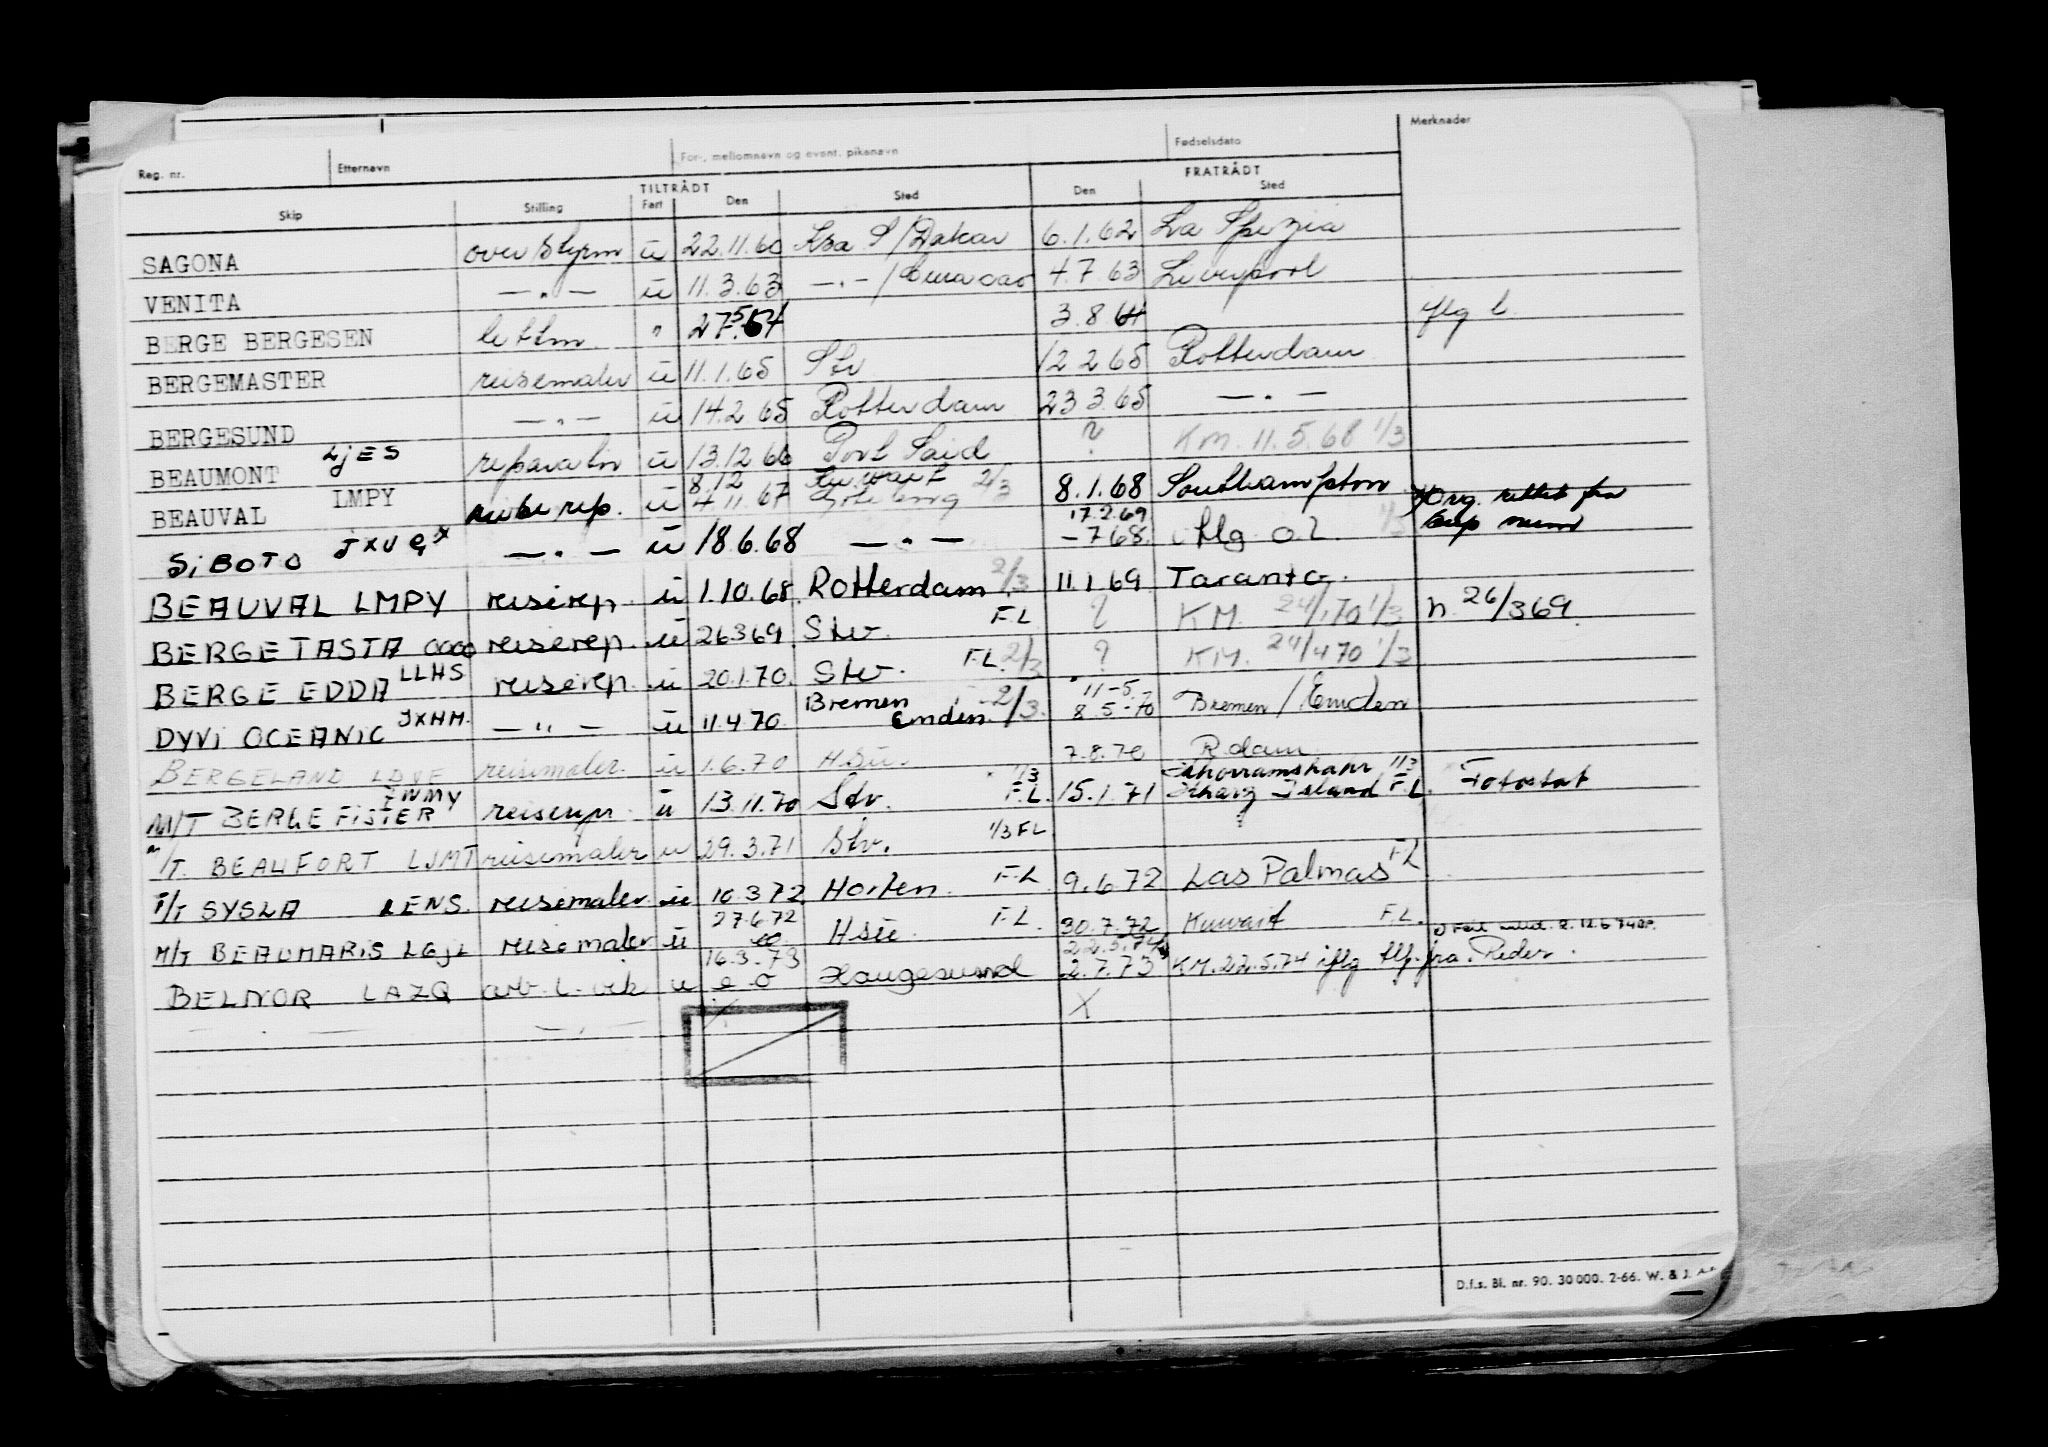 Reg. nr. Etternavn For-, mellomnavn og event. pikenavn Fødselsdato Merknader
TILTRÅDT FRATRÅDT
Skip Stilling Fart Den Sted Den Sted
SAGONA overstyrm u 22.11.60 Kra S/Dakar 6.1.62 La Spezia
VENITA — " — u 11.3.63 — " — /Curacao 4.7.63 Liverpool
BERGE BERGESEN lettm " 27.5.64 3.8.64 flg l
BERGEMASTER reisemaler u 11.1.65 Stv 12 2 65 Rotterdam
BERGESUND — " — u 14.2.65 Rotterdam 23 3.65 — " —
BEAUMONT LJES reparatør u 13.12 66 Port Said ? KM. 11.5.68 1/3
8.12 Kuwait 2/3
BEAUVAL LMPY reise rep. u 4.11.67 Göteborg 8.1.68 Southampton
17.2.69
SIBOTO JXUQ x — " — u 18.6.68 — " — – 7 68. flg. o.l. 1/3
BEAUVAL LMPY reiserep. u 1.10.68. Rotterdam 2/3 11.1.69 Taranto.
BERGETASTA reiserep. u 26369 Stv. F.L ? KM. 1/3 n. 26/369.
BERGE EDDA LLHS reiserep. u 20.1.70. Stv. F.L. 2/3 ? KM. 24/4 70 1/3
DYVI OCEANIC JXHM. — " — u 11.4.70 Bremen Emden. 2/3. 11-5. 8-5-70 Bremen / Emden
BERGELAND LDVF reisemaler. u 1.6.70 Hsu. 7.8.70 R.dam
M/T BERGE FISTER reiserepr. u 13.11.70 Stv. 1/3 F.L. 15.1.71 Khorramshahr 1/3 Kharg Island F.L. Fotostat
M/T. BEAUFORT LJMT reisemaler u 29.3.71 Stv. 1/3 FL
T/T SYSLA LENS. reisemaler u 10.3.72 Horten. F.L 9.6.72 Las Palmas FL
M/T BEAUMARIS LGJL reisemaler u 27.6.72 Hsu. F.L. 30.7.72 Kuwait F.L.
BELNOR LAZQ u 16.3.73 Haugesund 22.5.74 2.7.73 KM. 22.5.74 iflg tlf. fra. Reder.
X
D.f.s. Bl. nr. 90. 30 000. 2-66. W. & J. A.s